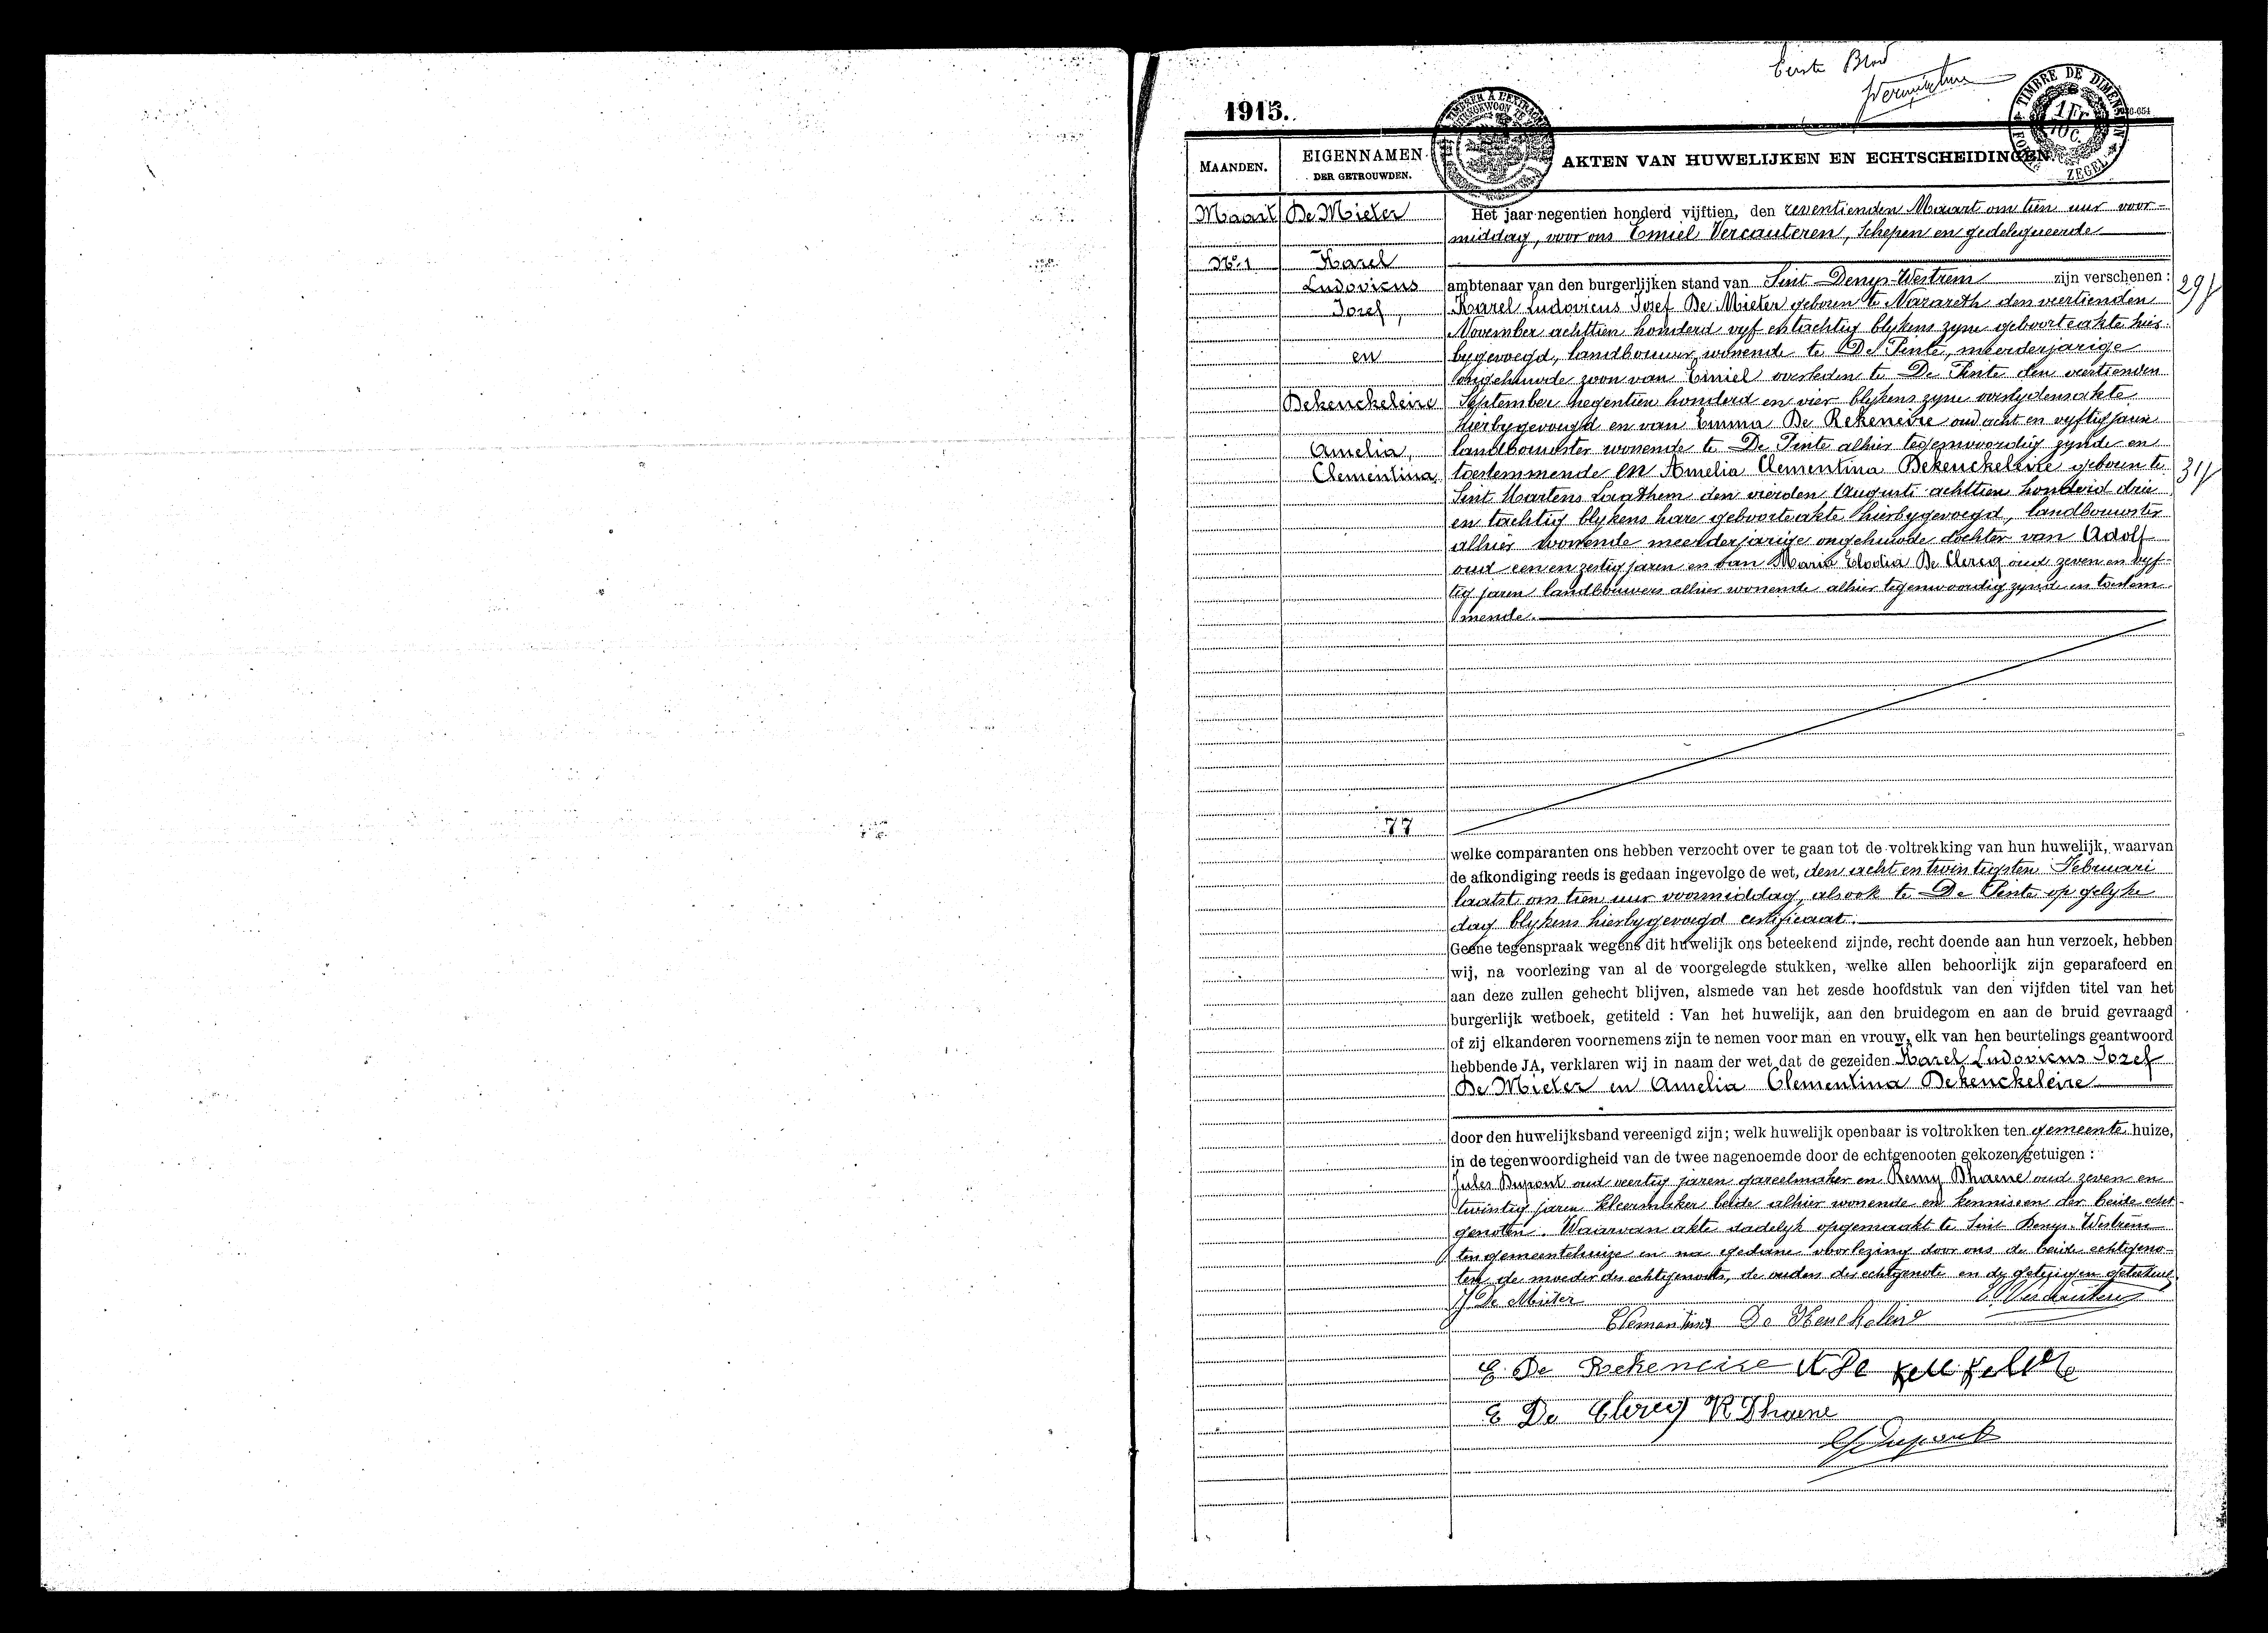 Eerste Blad
1915.
TIMBRE DE DIMENSION
1 Fr.
10 C.
ZEGEL
MAANDEN.
EIGENNAMEN
DER GETROUWDEN.
AKTEN VAN HUWELIJKEN EN ECHTSCHEIDINGEN.
Maart
No. 1
De Mieter
Karel
Ludovicus
Jozef,
en
Dekenckeleire
Amelia,
Clementina
77
Het jaar negentien honderd vijftien, den zeventienden Maart om tien uur voor-
middag, voor ons Emiel Vercauteren, Schepen en gedelegueerde
ambtenaar van den burgerlijken stand van Sint Denys-Westrem zijn verschenen :
29
Karel Ludovicus Josef De Mieter geboren te Nazareth den viertienden
November achttien honderd vyf en tachtig blykens zyne geboorteakte hier-
bygevoegd, landbouwer wonende te De Pinte, meerderjarige
ongehuwde zoon van Emiel overleden te De Pinte den viertienden
September negentien honderd en vier blykens zyne overlydensakte
hierbygevoegd en van Emma De Rekeneire oud acht en vyftig jaren
landbouwster wonende te De Pinte alhier tegenwoordig zynde en
toestemmende en Amelia Clementina Dekenckeleire geboren te
31
Sint Martens Laathem den vierden Augusti achttien honderd drie
en tachtig blykens hare geboorteakte hierbygevoegd, landbouwster
alhier wonende meerderjarige ongehuwde dochter van Adolf
oud een en zestig jaren en van Maria Elodia De Clercq oud zeven en vyf-
tig jaren landbouwers alhier wonende alhier tegenwoordig zynde en toestem-
mende.
welke comparanten ons hebben verzocht over te gaan tot de voltrekking van hun huwelijk, waarvan
de afkondiging reeds is gedaan ingevolge de wet, den acht en twintigsten Februari
laatst om tien uur voormiddag, alsook te De Pinte op gelyke
dag blykens hierbygevoegd certificaat.
Geene tegenspraak wegens dit huwelijk ons beteekend zijnde, recht doende aan hun verzoek, hebben
wij, na voorlezing van al de voorgelegde stukken, welke allen behoorlijk zijn geparafeerd en
aan deze zullen gehecht blijven, alsmede van het zesde hoofdstuk van den vijfden titel van het
burgerlijk wetboek, getiteld : Van het huwelijk, aan den bruidegom en aan de bruid gevraagd
of zij elkanderen voornemens zijn te nemen voor man en vrouw, elk van hen beurtelings geantwoord
hebbende JA, verklaren wij in naam der wet dat de gezeiden Karel Ludovicus Jozef
De Mieter en Amelia Clementina Dekenckeleire
door den huwelijksband vereenigd zijn; welk huwelijk openbaar is voltrokken ten gemeente huize,
in de tegenwoordigheid van de twee nagenoemde door de echtgenooten gekozen getuigen :
Jules Dupont oud veertig jaren gareelmaker en Remy Dhaene oud zeven en
twintig jaren kleermaker beide alhier wonende en kennissen der beide echt-
genoten. Waarvan akte dadelyk opgemaakt te Sint Denys-Westrem
ten gemeentehuize en na gedane voorlezing door ons de beide echtgeno-
ten, de moeder des echtgenoots, de ouders der echtgenote en de getuigen geteekend.
De Mieter E. Vercauteren
Clementina De Kenckeleire
E. De Rekeneire A De
E De Clercq R Dhaene
Dupont